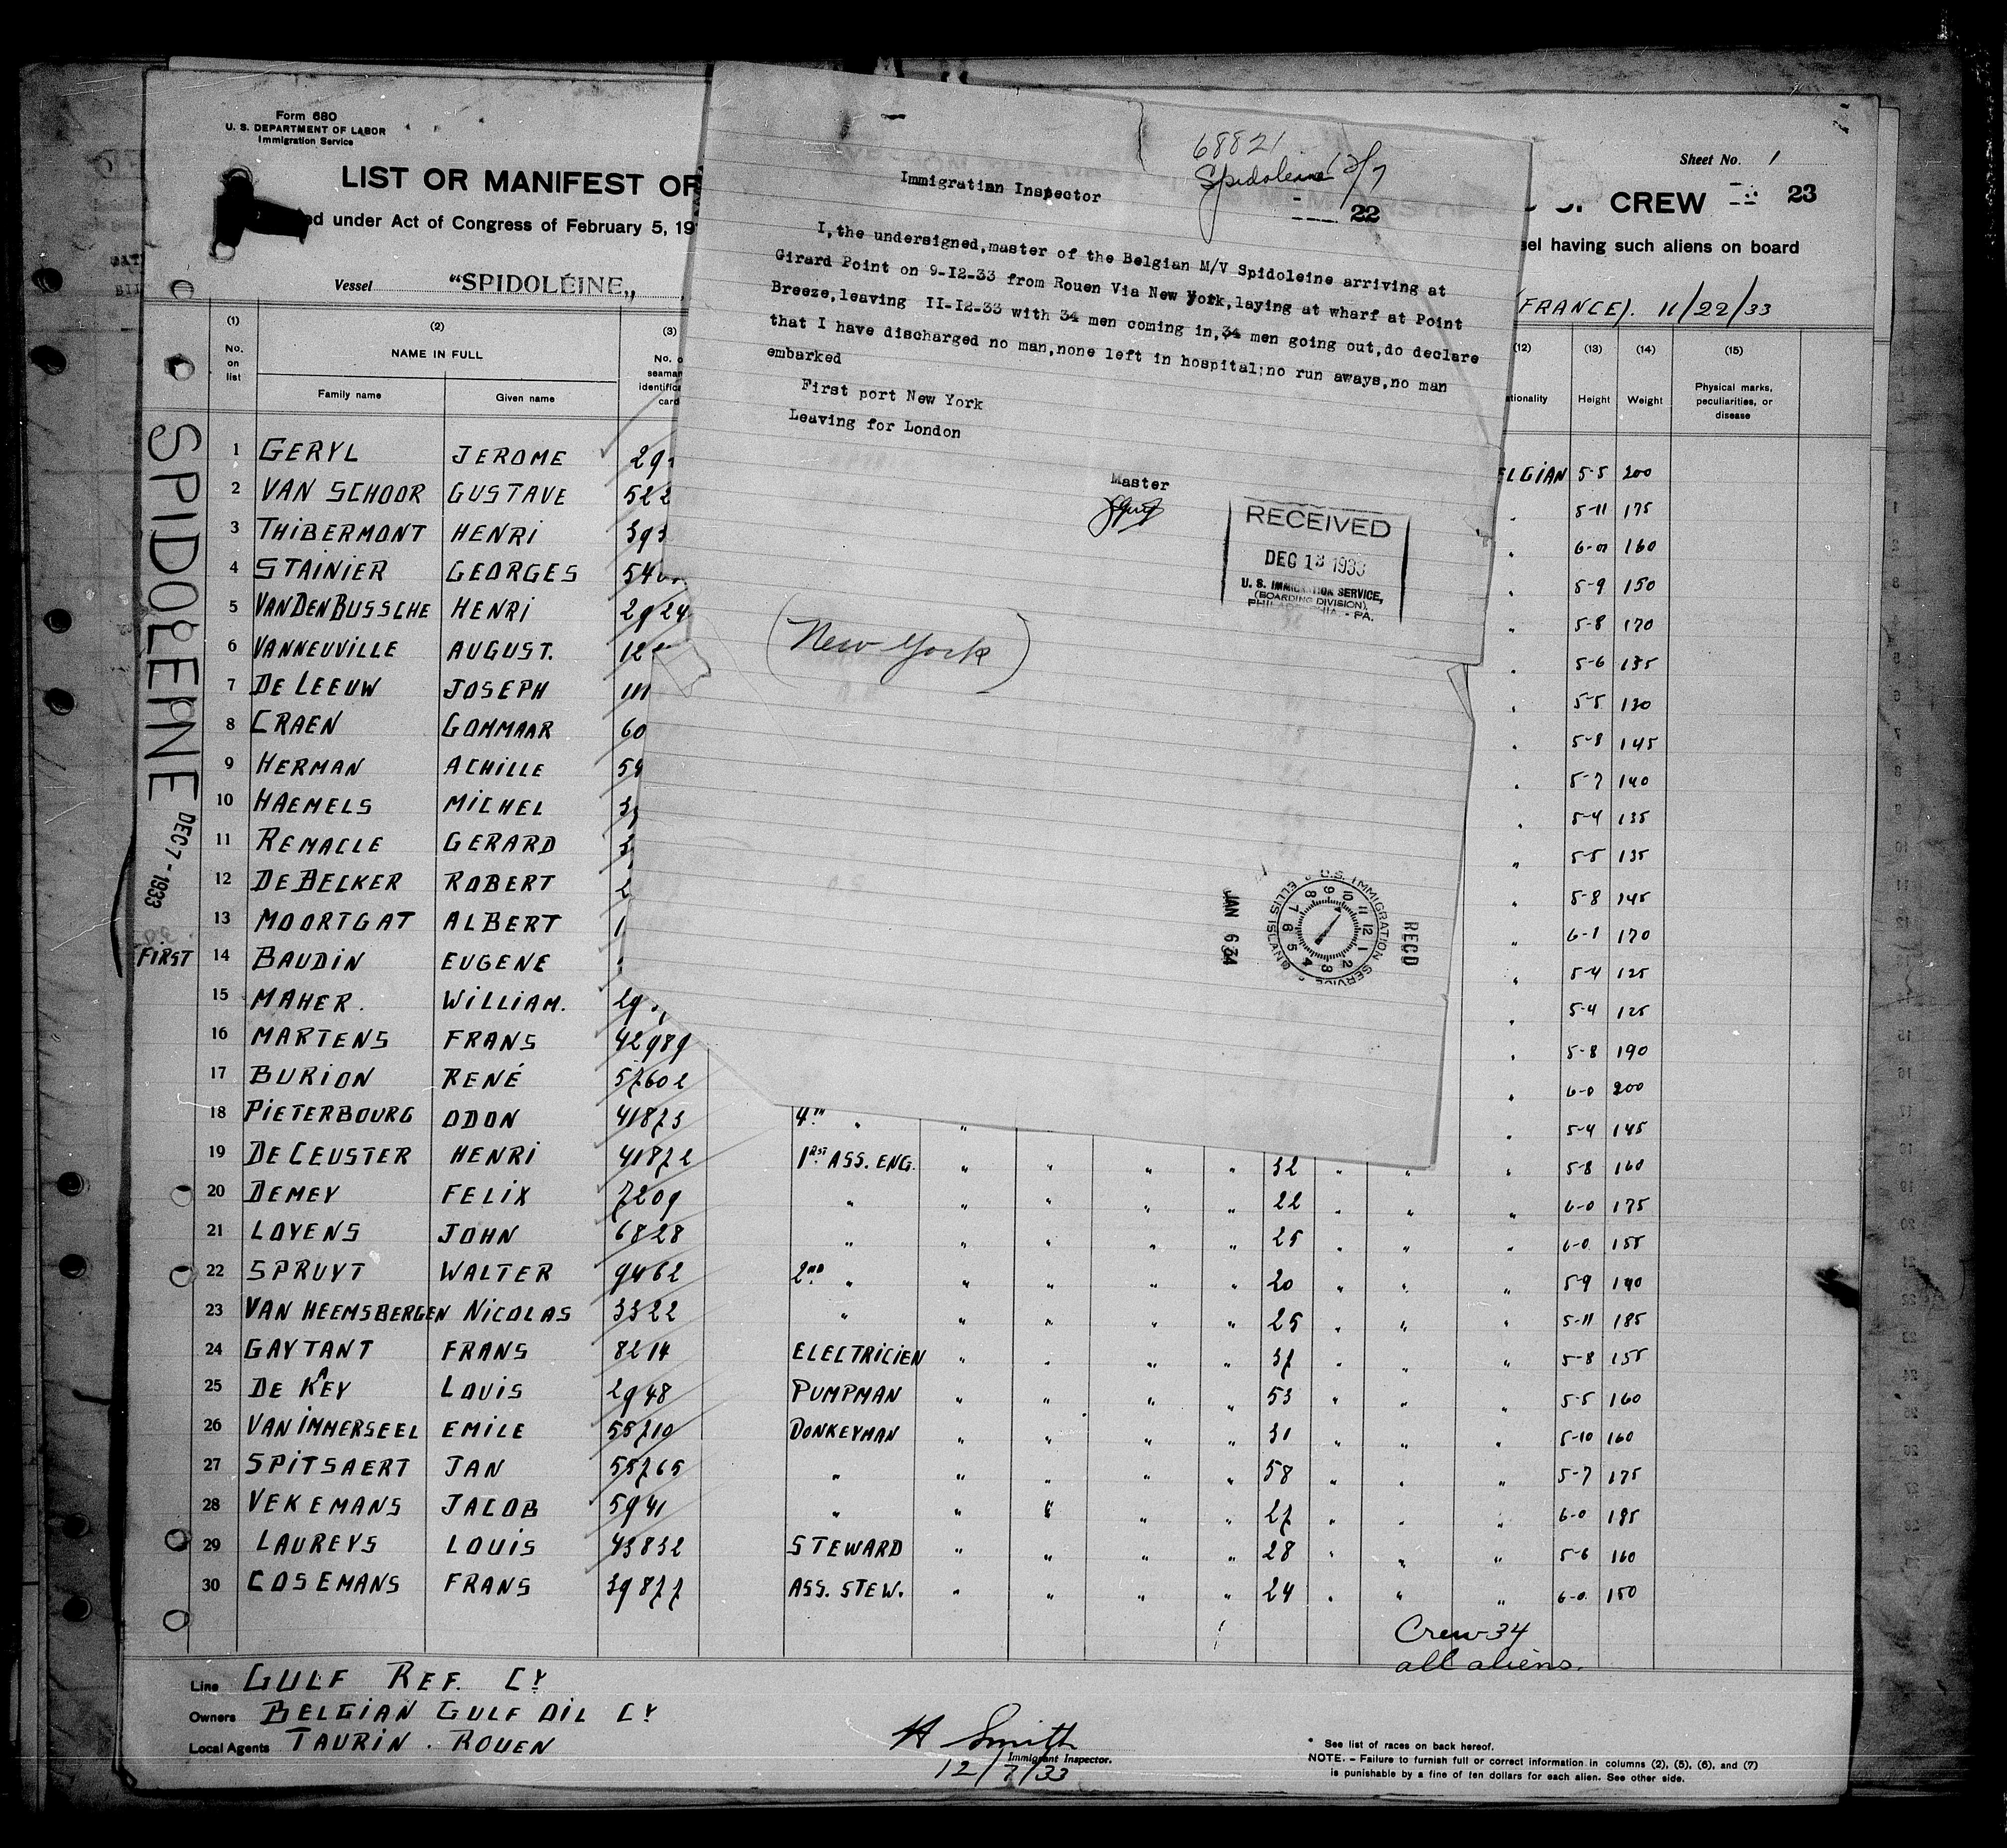 Form 680
U. S. DEPARTMENT OF LABOR
Immigration Service
LIST OR MANIFEST OF
ed under Act of Congress of February 5, 19
Vessel "SPIDOLÉINE„
Sheet No. 1
CREW 23
sel having such aliens on board
(FRANCE). 11/22/33
68821
Spidoleine 12/7
22
Immigratian Inspector
I,the undersigned,master of the Belgian M/V Spidoleine arriving at
Girard Point on 9-I2-33 from Rouen Via New York,laying at wharf at Point
Breeze,leaving II-I2-33 with 34 men coming in,34 men going out,do declare
that I have discharged no man,none left in hospital;no run aways,no man
embarked
First port New York
Leaving for London
Master
RECEIVED
DEC 13 1933
U. S. IMMIGRATION SERVICE,
(BOARDING DIVISION),
PHILADELPHIA - PA.
(New York)
JAN 6 34
U.S. IMMIGRATION SERVICE
ELLIS ISLAND
1 2 3 4 5 6 7 8 9 10 11 12
RECD
SPIDOLEINE
DEC 7 - 1933
FIRST
(1) (2) (3) (12) (13) (14) (15)
No. on list
NAME IN FULL
Family name Given name
Height Weight
Physical marks, peculiarities, or disease
1 GERYL JEROME 29 ELGIAN 5-5 200
2 VAN SCHOOR GUSTAVE 522 " 5-11 175
3 THIBERMONT HENRI 393 " 6-0 160
4 STAINIER GEORGES 540 " 5-9 150
5 VANDENBUSSCHE HENRI 2924 " 5-8 170
6 VANNEUVILLE AUGUST. 12 " 5-6 135
7 DE LEEUW JOSEPH " 5-5 130
8 CRAEN GOMMAAR 60 " 5-8 145
9 HERMAN ACHILLE 59 " 5-7 140
10 HAEMELS MICHEL " 5-4 135
11 REMACLE GERARD " 5-5 135
12 DE BECKER ROBERT 2 " 5-8 145
13 MOORTGAT ALBERT 1 " 6-1 170
14 BAUDIN EUGENE " 5-4 125
15 MAHER. WILLIAM. 29 " 5-4 125
16 MARTENS FRANS 42989 " 5-8 190
17 BURION RENÉ 57602 " 6-0 200
18 PIETERBOURG ODON 41873 4TH " " " 5-4 145
19 DE CEUSTER HENRI 41872 1RST ASS. ENG. " " " " 32 " " " 5-8 160
20 DEMEY FELIX 7209 " " " " " 22 " " " 6-0 175
21 LOYENS JOHN 6828 " " " " " 25 " " " 6-0 155
22 SPRUYT WALTER 9462 2ND " " " " " 20 " " " 5-9 140
23 VAN HEEMSBERGEN NICOLAS 3322 " " " " " 25 " " " 5-11 185
24 GAYTANT FRANS 8214 ELECTRICIEN " " " " 37 " " " 5-8 155
25 DE KEY LOUIS 2948 PUMPMAN " " " " 53 " " " 5-5 160
26 VAN IMMERSEEL EMILE 55710 DONKEYMAN " " " " 31 " " " 5-10 160
27 SPITSAERT JAN 55765 " " " " " 58 " " " 5-7 175
28 VEKEMANS JACOB 5941 " " " " " 27 " " " 6-0 185
29 LAUREYS LOUIS 43832 STEWARD " " " " 28 " " " 5-6 160
30 COSEMANS FRANS 39877 ASS. STEW. " " " " 24 " " " 6-0 150
Crew 34
all aliens.
Line GULF REF. CY
Owners BELGIAN GULF OIL CY
Local Agents TAURIN. ROUEN
H Smith
Immigrant Inspector.
12/7/33
* See list of races on back hereof.
NOTE. – Failure to furnish full or correct information in columns (2), (5), (6), and (7)
is punishable by a fine of ten dollars for each alien. See other side.